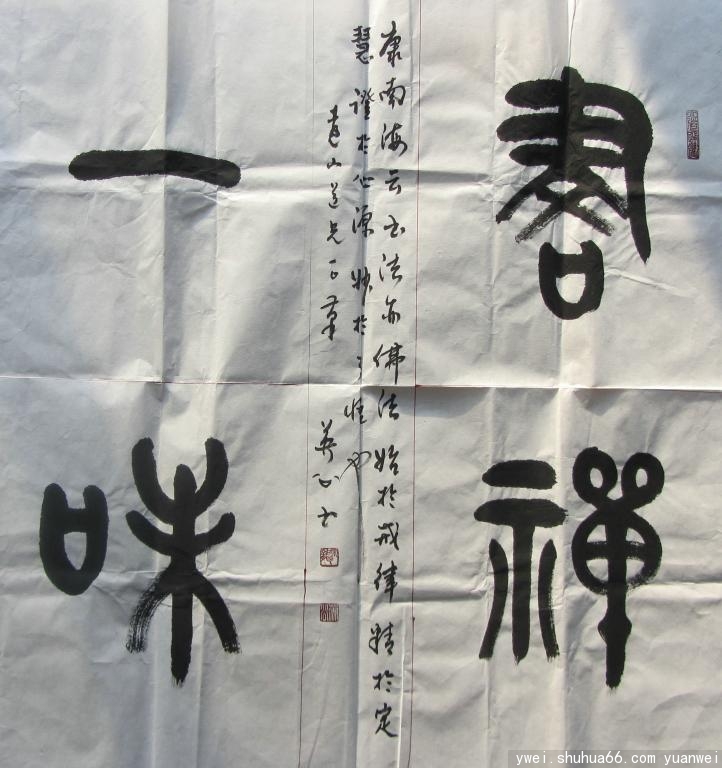 書禪
康南海云书法亦佛法始於戒律精於定
慧證於心源妙於了悟也
山道兄
书
一味
ywei.shuhua66.com yuanwei